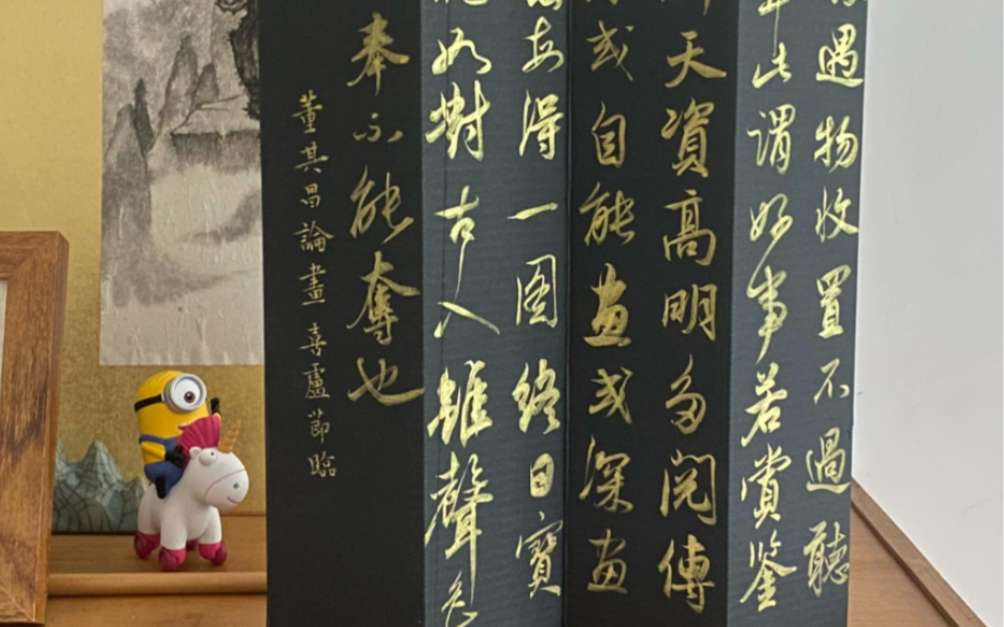 遇物收置不過聽
此謂好事若賞鑒
天資高明多閱傳
或自能畫或深畫
安得一圖終日寶
如對古人雖聲色
奉不能奪也
董其昌論畫 喜盧節臨